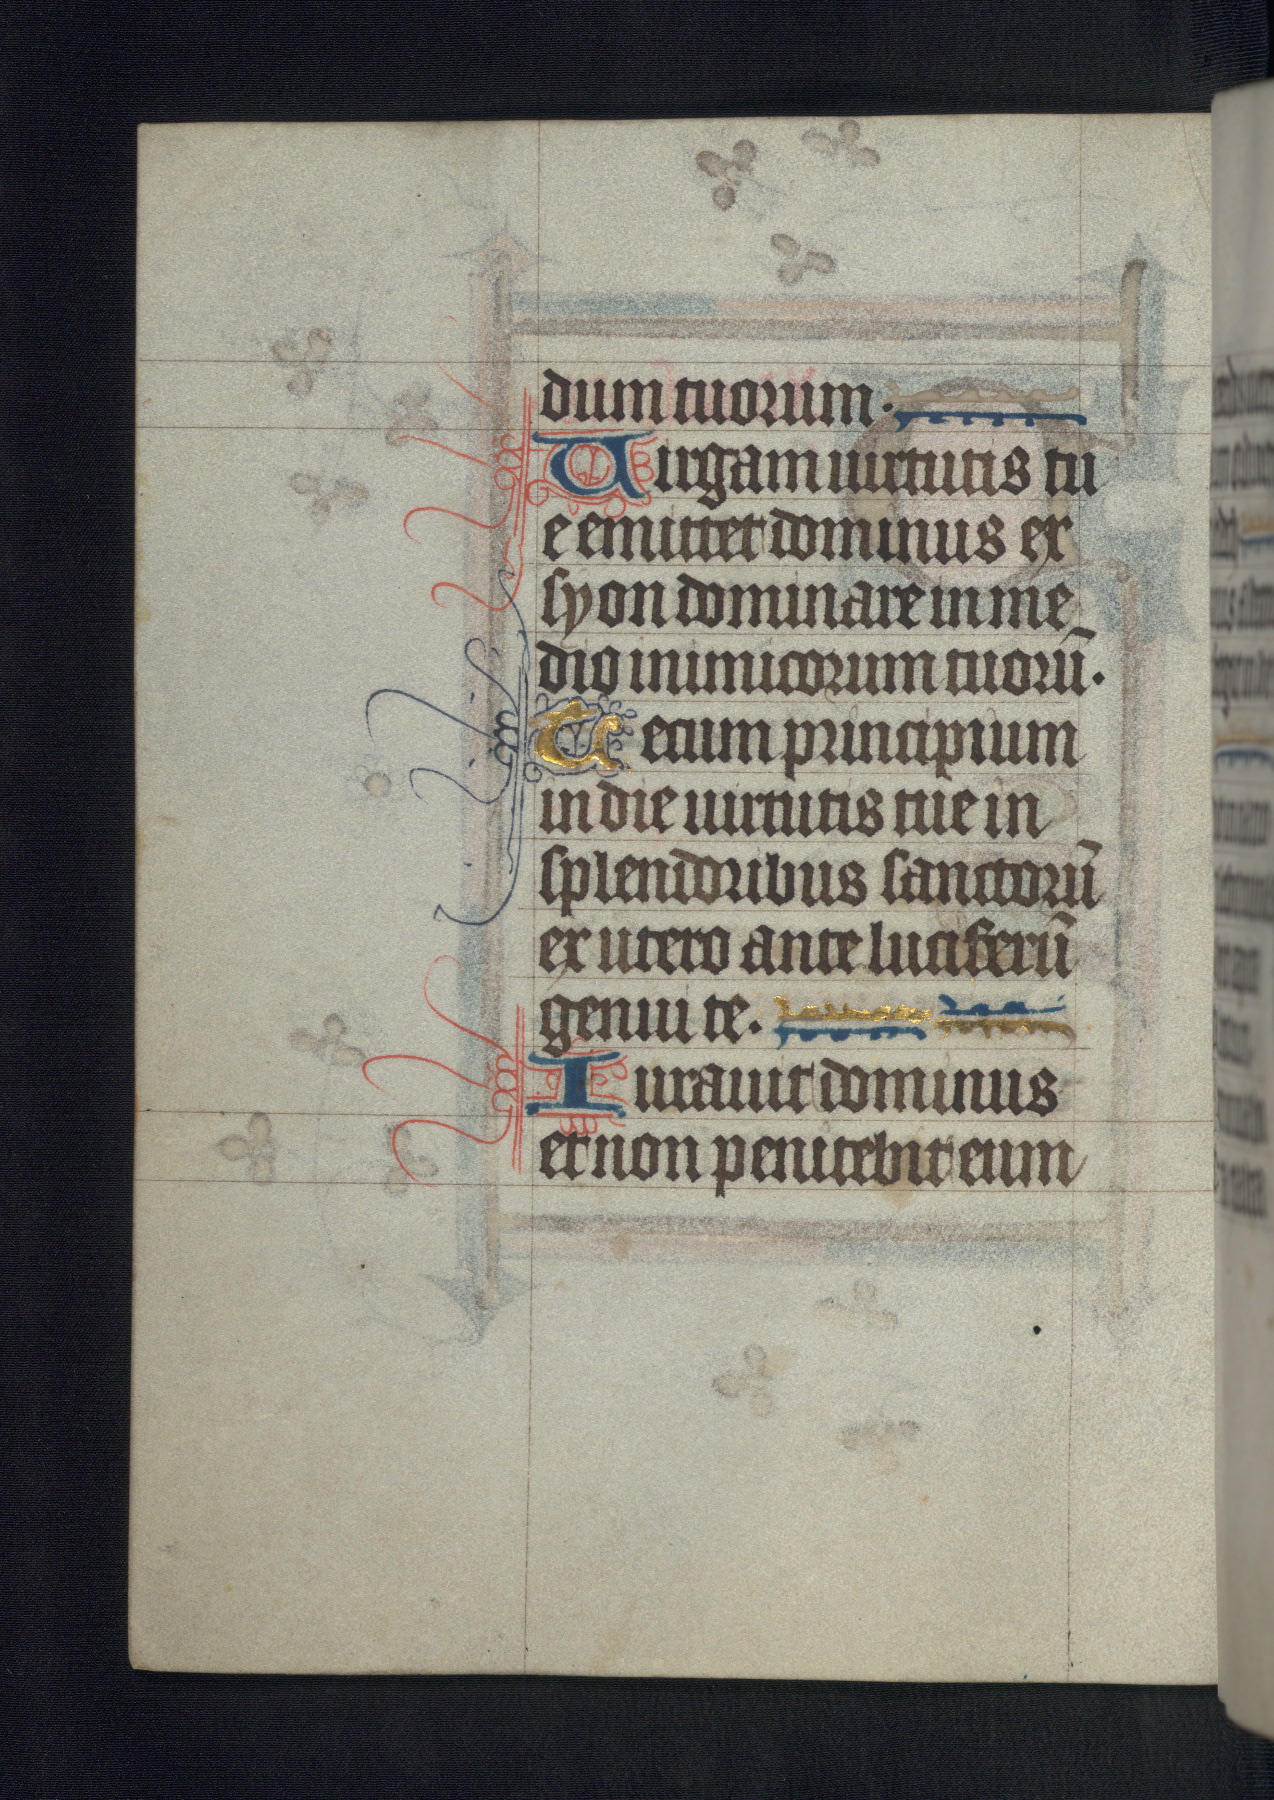 dum tuorum.
Uirgam uirtutis tu
e emittet dominus ex
syon dominare in me
dio inimicorum tuorū.
Tecum principium
in die uirtutis tue in
splendoribus sanctorū
ex utero ante luciferū
genui te.
Iurauit dominus
et non penitebit eum